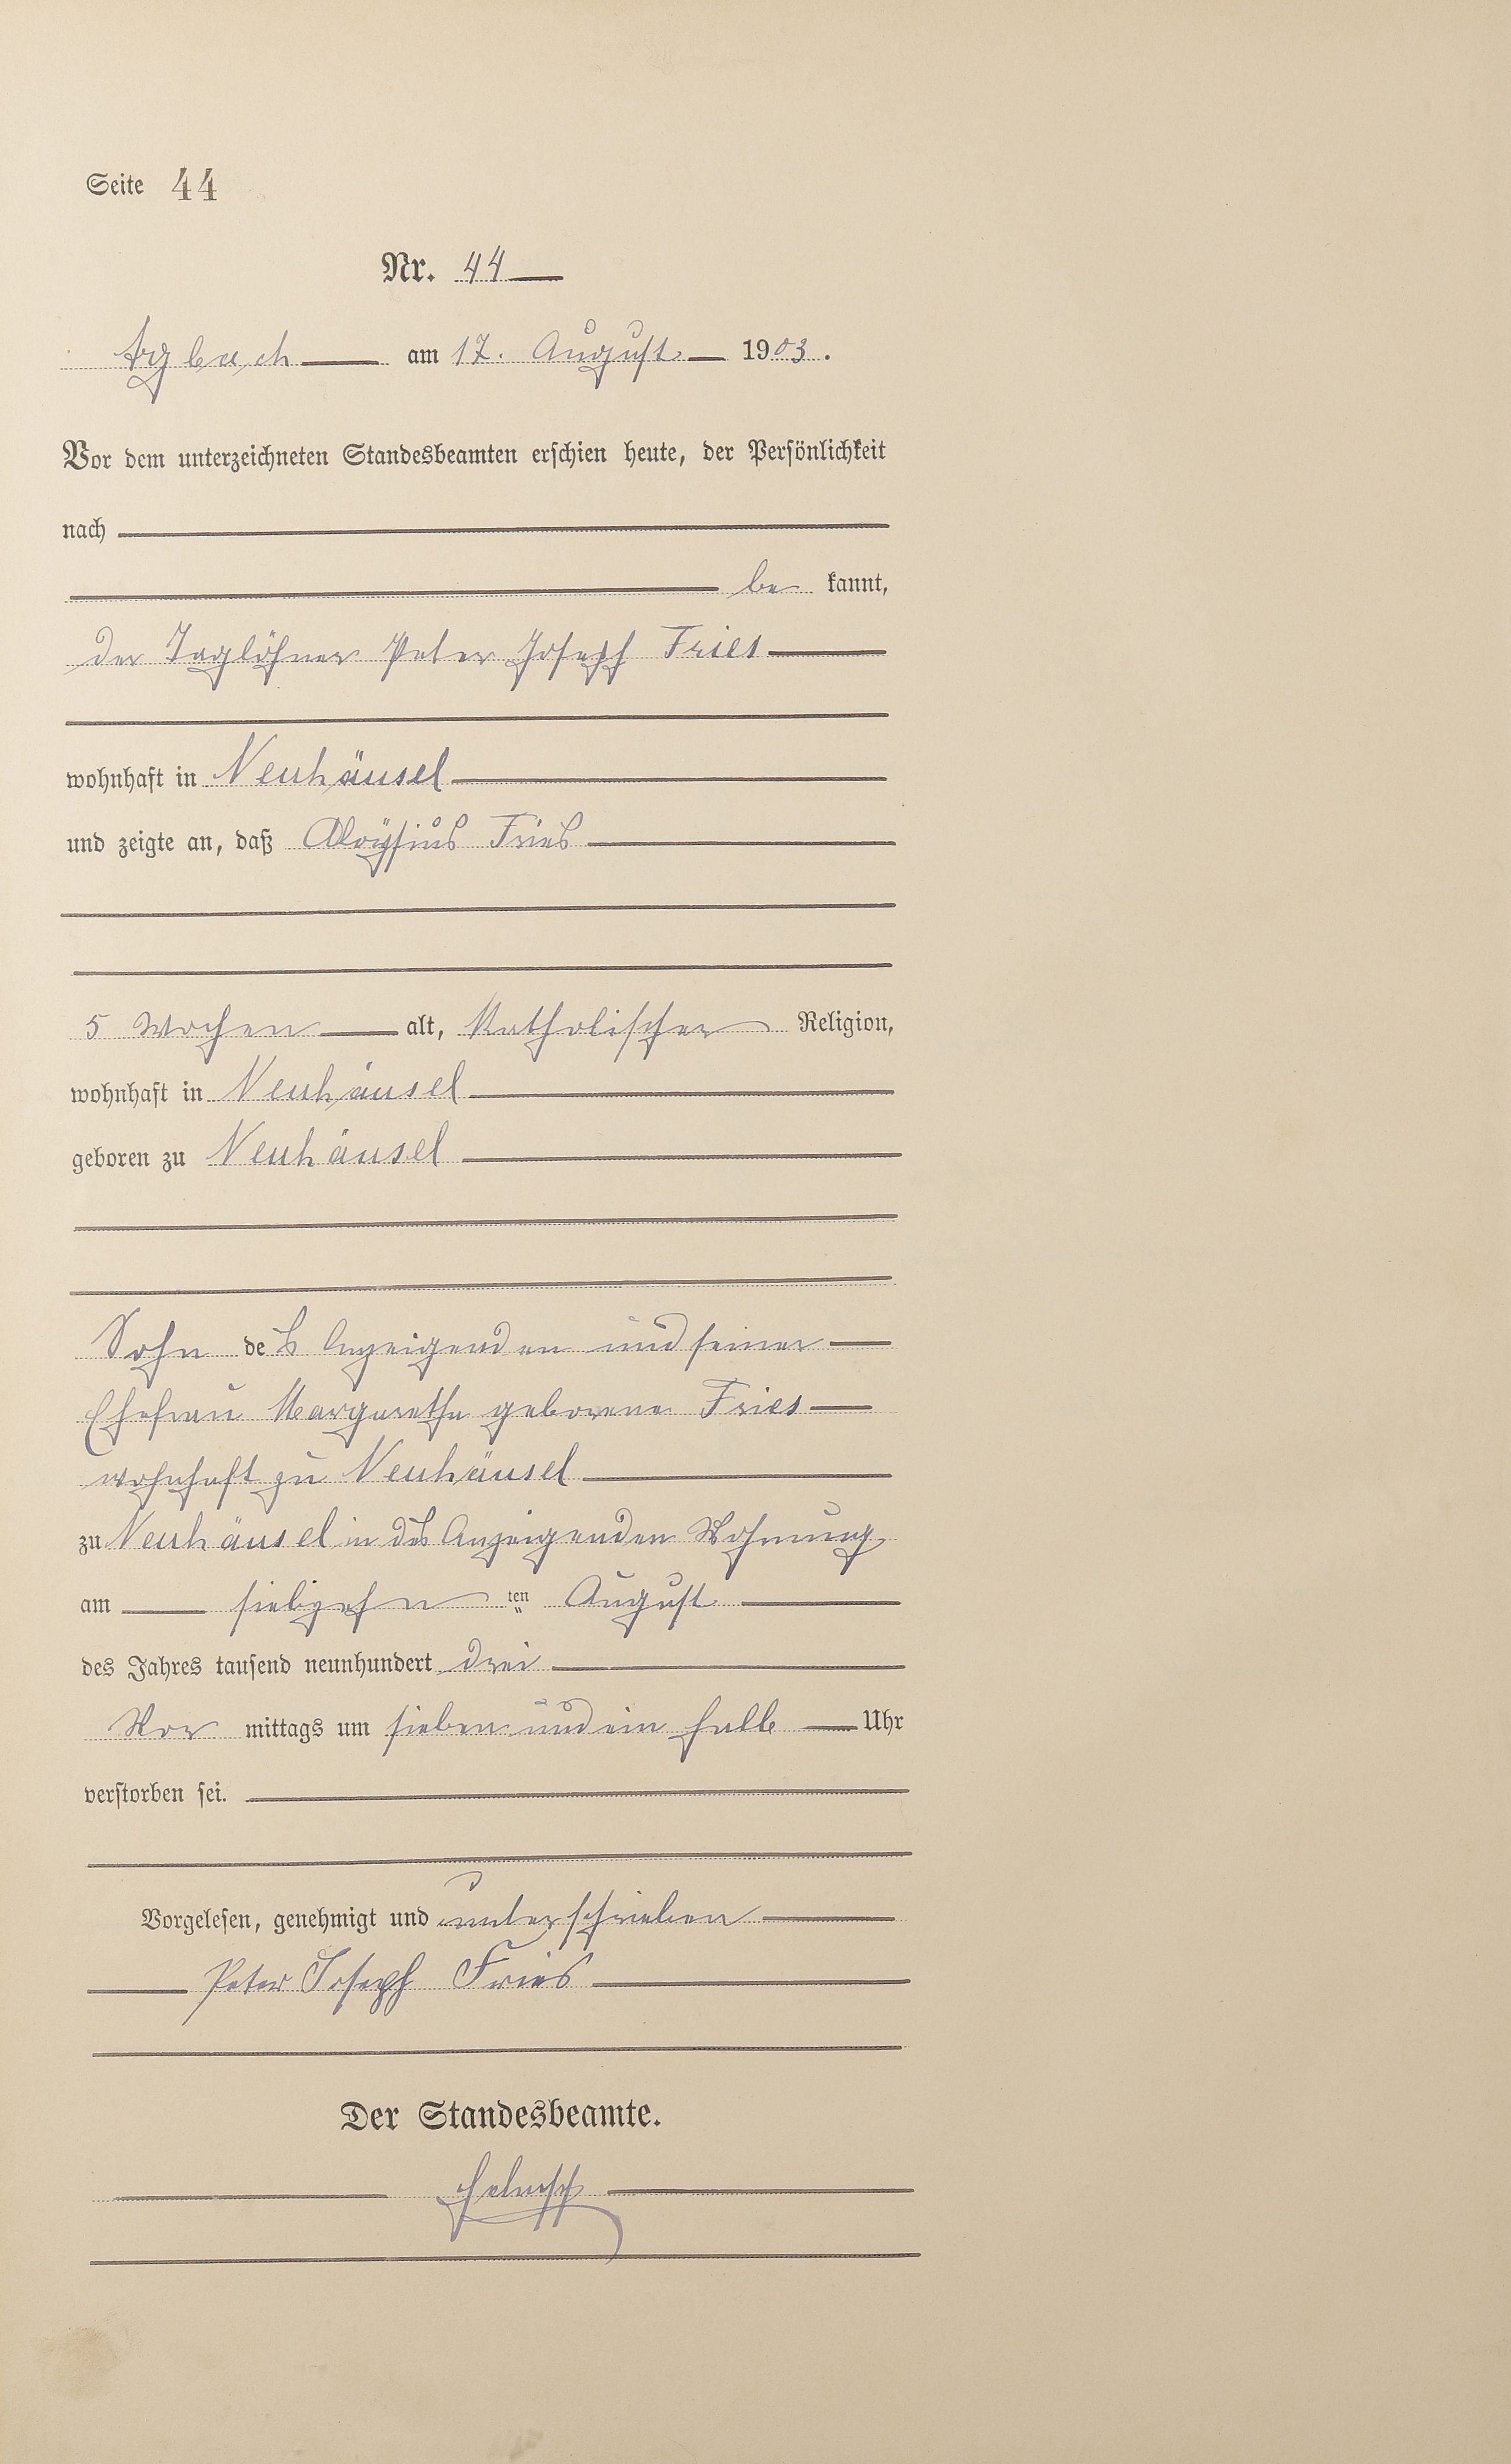 Seite 44
Nr. 44
Arzbach am 17. August 1903.
Vor dem unterzeichneten Standesbeamten erschien heute, der Persönlichkeit
nach
be kannt,
der Taglöhner Peter Joseph Fries
wohnhaft in Neuhäusel
und zeigte an, daß Aloÿsius Fries
5 Wochen alt, Katholischer Religion,
wohnhaft in Neuhäusel
geboren zu Neuhäusel
Sohn des Anzeigenden und seiner
Ehefrau Margarethe geborene Fries
wohnhaft zu Neuhäusel
zu Neuhäusel in des Anzeigenden Wohnung
am siebzehn ten August
des Jahres tausend neunhundert drei
Vor mittags um sieben und ein halb Uhr
verstorben sei.
Vorgelesen, genehmigt und unterschrieben
Peter Joseph Fries
Der Standesbeamte.